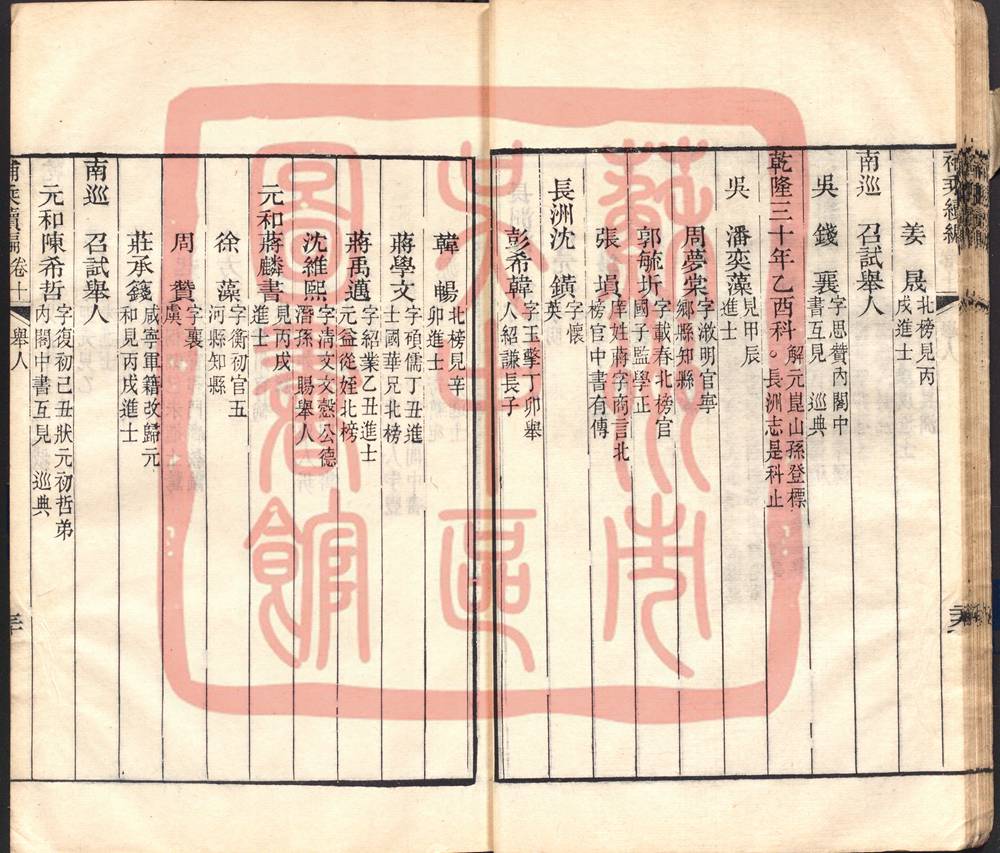 姜 晟 北榜見丙
戌進士
南巡 召試舉人
吳 錢 襄 字思贊內閣中
書互見 巡典
乾隆三十年乙酉科 解元崑山孫登標
。長洲志是科止
吳 潘奕藻 見甲辰
進士
周夢棠 字澂明官寧
鄉縣知縣
郭毓圻 字載春北榜官
國子監學正
張 塤 庠姓蔣字商言北
榜官中書有傳
長洲沈 鐄 字懷
英
彭希韓 字玉擎丁卯舉
人紹謙長子
韓 暢 北榜見辛
卯進士
蔣學文 字碩儒丁丑進
士國華兄北榜
蔣禹邁 字紹業乙丑進士
元益從姪北榜
沈維熙 字淸文文慤公德
潛孫 賜舉人
元和蔣麟書 見丙戌
進士
徐 藻 字衡初官五
河縣知縣
周 贊 字襄
虞
莊承籛 咸寧軍籍改歸元
和見丙戌進士
南巡 召試舉人
元和陳希哲 字復初己丑狀元初哲弟
內閣中書互見 巡典
卷十 舉人
蘇州市
吳中區
圖書館